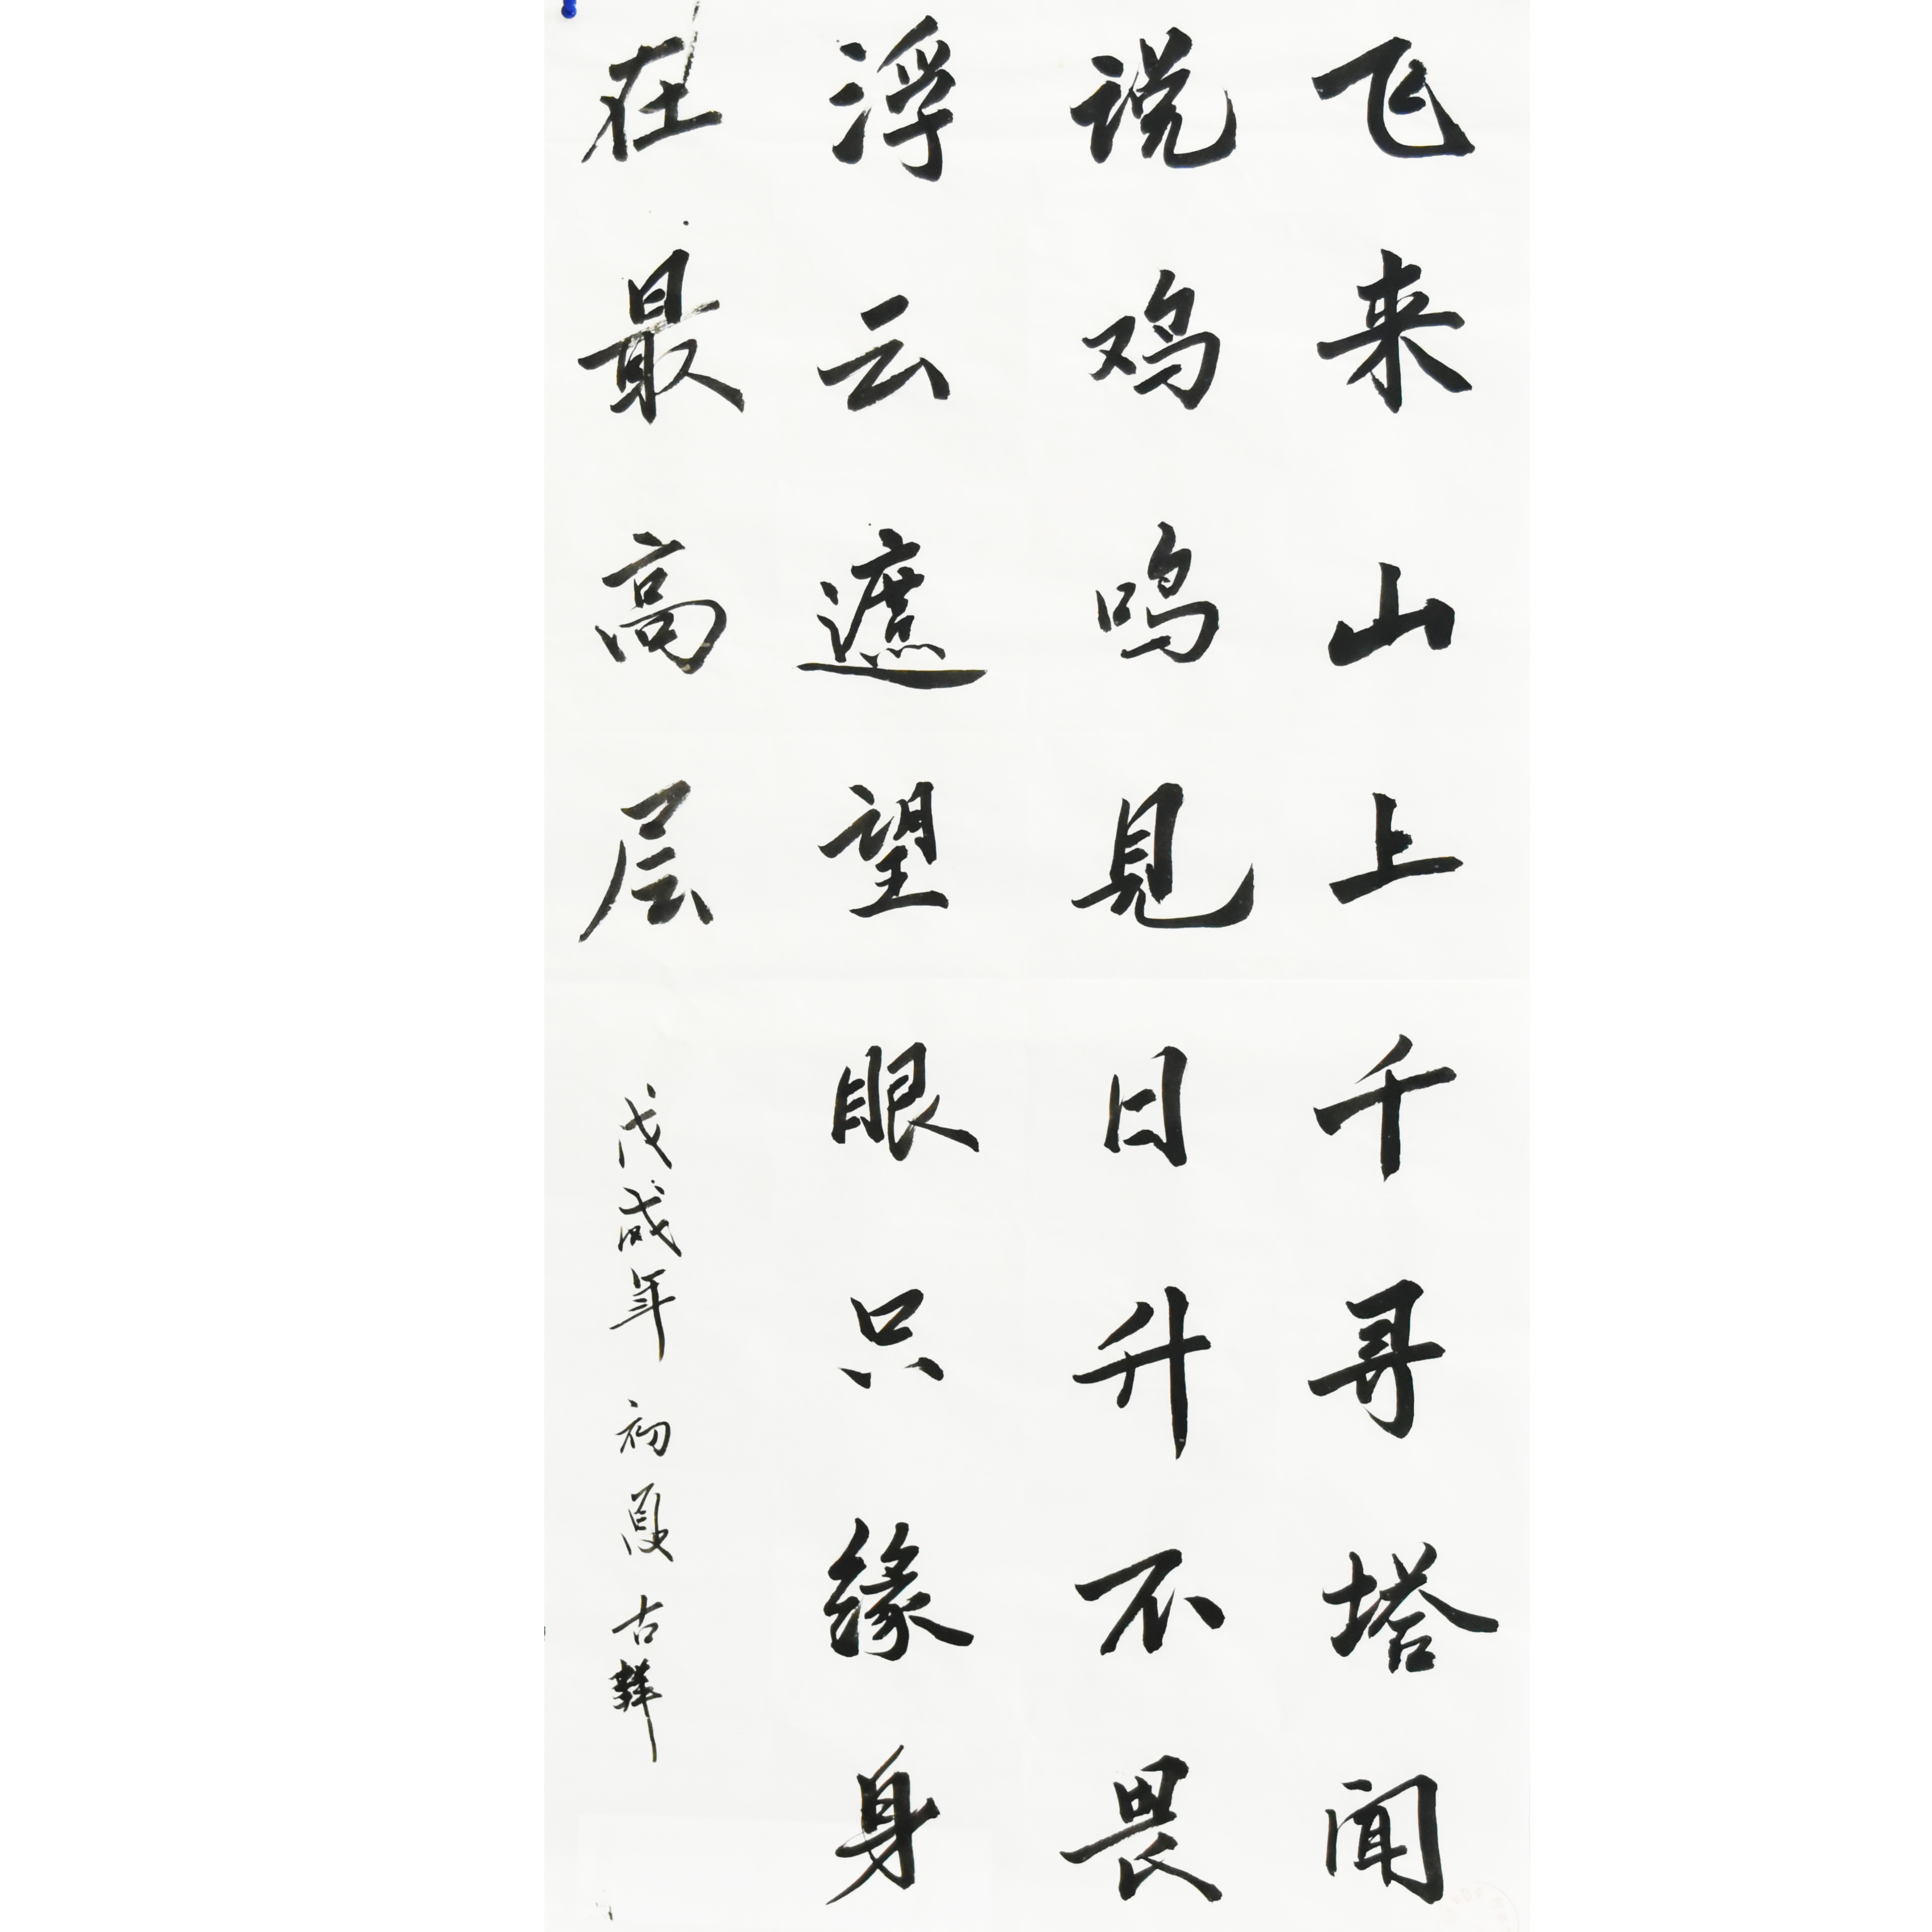 飞来山上千寻塔闻
说鸡鸣見日升不畏
浮云遮望眼只缘身
在最高层
戊戌年 初夏 古群